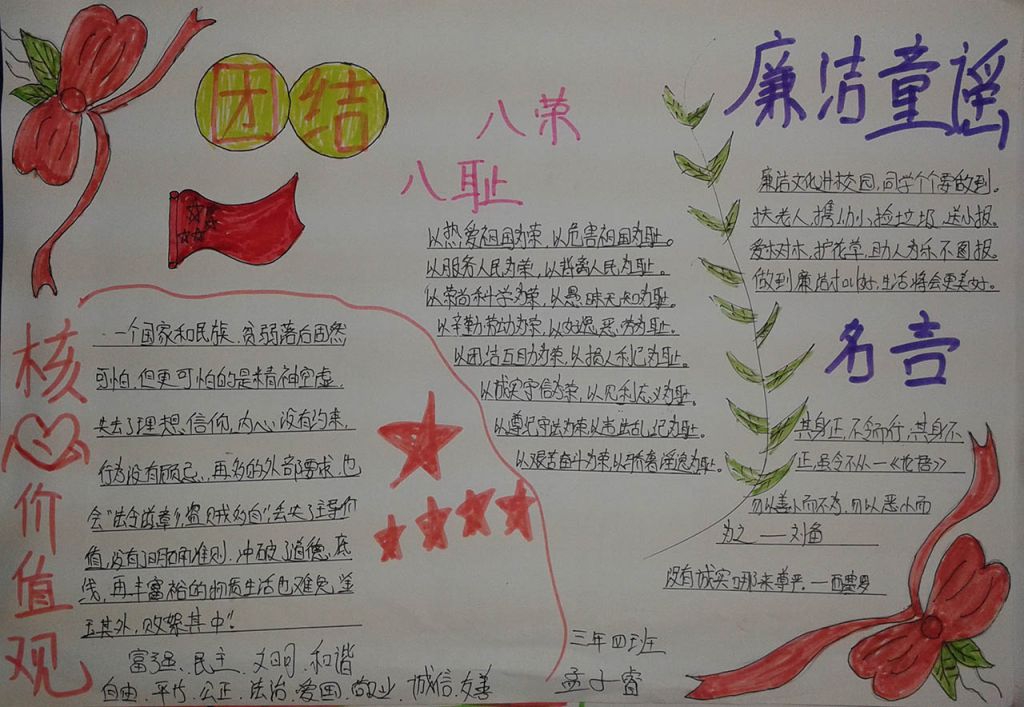 团结
八荣
八耻
以热爱祖国为荣，以危害祖国为耻。
以服务人民为荣，以背离人民为耻。
以崇尚科学为荣，以愚昧无知为耻。
以辛勤劳动为荣，以好逸恶劳为耻。
以团结互助为荣，以损人利己为耻。
以诚实守信为荣，以见利忘义为耻。
以遵纪守法为荣以违法乱纪为耻。
以艰苦奋斗为荣，以骄奢淫逸为耻。
廉洁童谣
廉洁文化进校园，同学个个要做到。
扶老人，携幼小，捡垃圾，送小报。
爱树木，护花学，助人为乐不图报。
做到廉洁
好，生活将会更美好。
名言
其身正，不令而行，其身不
正，虽令不从—《论语》
勿以善小而不为，勿以恶小而
为之 —刘备
没有诚实哪来尊严。—西塞罗
核心价值观
一个国家和民族，贫弱落后固然
可怕，但更可怕的是精神空虚，
失去了理想、信仰，内心没有约束，
行为没有顾忌，再多的外部要求，也
会
丢失了主导价
值，没有了明确准则，冲破了道德底
线，再丰富裕的物质生活也难免
玉其外，败絮其中"！
富强、民主、文明、和谐
自由、平等、公正、法治、爱国、敬业、诚信、友善
三年四班
孟子睿